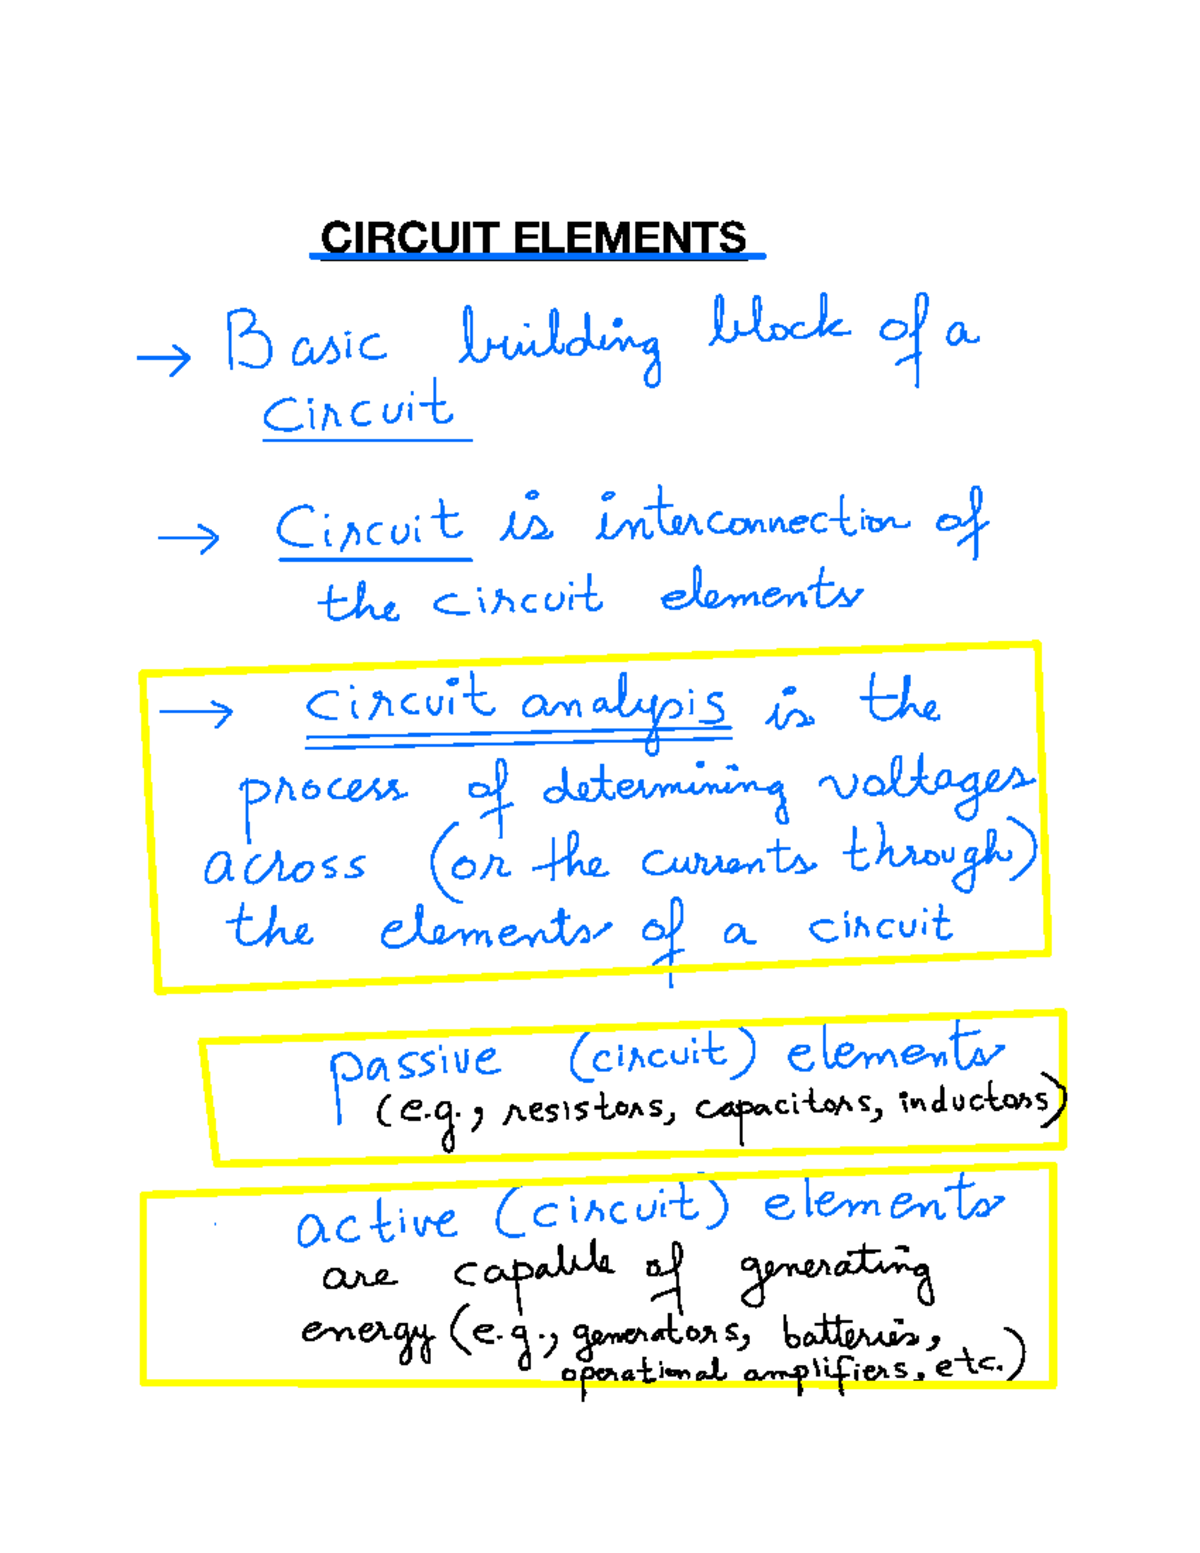 CIRCUIT ELEMENTS
→ Basic building block of a
circuit
→ Circuit is interconnection of
the circuit elements
→ circuit analysis is the
process of determining voltages
across (or the currents through)
the elements of a circuit
passive (circuit) elements
(e.g., resistors, capacitors, inductors)
active (circuit) elements
are capable of generating
energy (e.g., generators, batteries,
operational amplifiers, etc.)